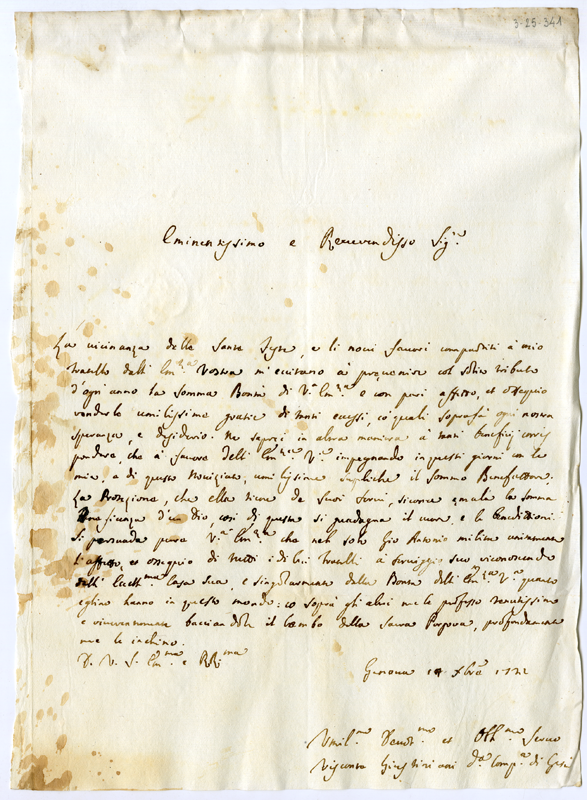 3-25-341
Eminentissimo e Reverendisso Sig.re
La vicinanza delle Sante Feste, e li novi favori compartiti à mio
fratello dall' Em.za Vostra m'eccitano à prevenire col solito tributo
d'ogni anno la somma Bontà di V.a Em.za e con pari affetto, et ossequio
renderle umilissime gratie di tanti eccessi, co' quali soprafà ogni nostra
speranza, e desiderio. Ne saprei in altra maniera à tanti benefizj corris
pondere, che à favore dell' Em.za V.a impegnando in questi giorni con le
mie, e di questo Noviziato, umilissime suppliche il sommo Benefattore.
La Protezione, che ella tiene de suoi servi, siccome emula la somma
Beneficenza d'un Dio, così di questa si guadagna il cuore, e le benedittioni.
Si persuada pure V.a Em.za che nel solo Gio Antonio milita unitamente
l'affetto, et ossequio di tutti i di lui fratelli à servigj suoi riconoscendo
dall' Eccell.ma Casa Sua, e singolarmente dalla Bontà dell' Em.za V.a quanto
eglino hanno in questo mondo: io sopra gli altri me le professo tenutissimo
e riverentemente bacciandole il lembo della Sacra Porpora, profondamente
me le inchino.
D. V. S. Em.ma e RR.ma
Genova 14 Xbre
Umil.mo Devot.mo et Obb.mo Servo
Visconte Giustiniani d.a Comp.a di Giesù